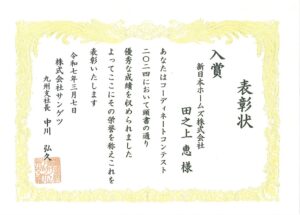 表彰状
入賞
新日本ホームズ株式会社
田之上 恵 様
あなたはコーディネートコンテスト
二〇二四において頭書の通り
優秀な成績を収められました
よってここにその栄誉を称えこれを
表彰いたします
令和七年三月七日
株式会社サンゲツ
九州支社長 中川 弘久